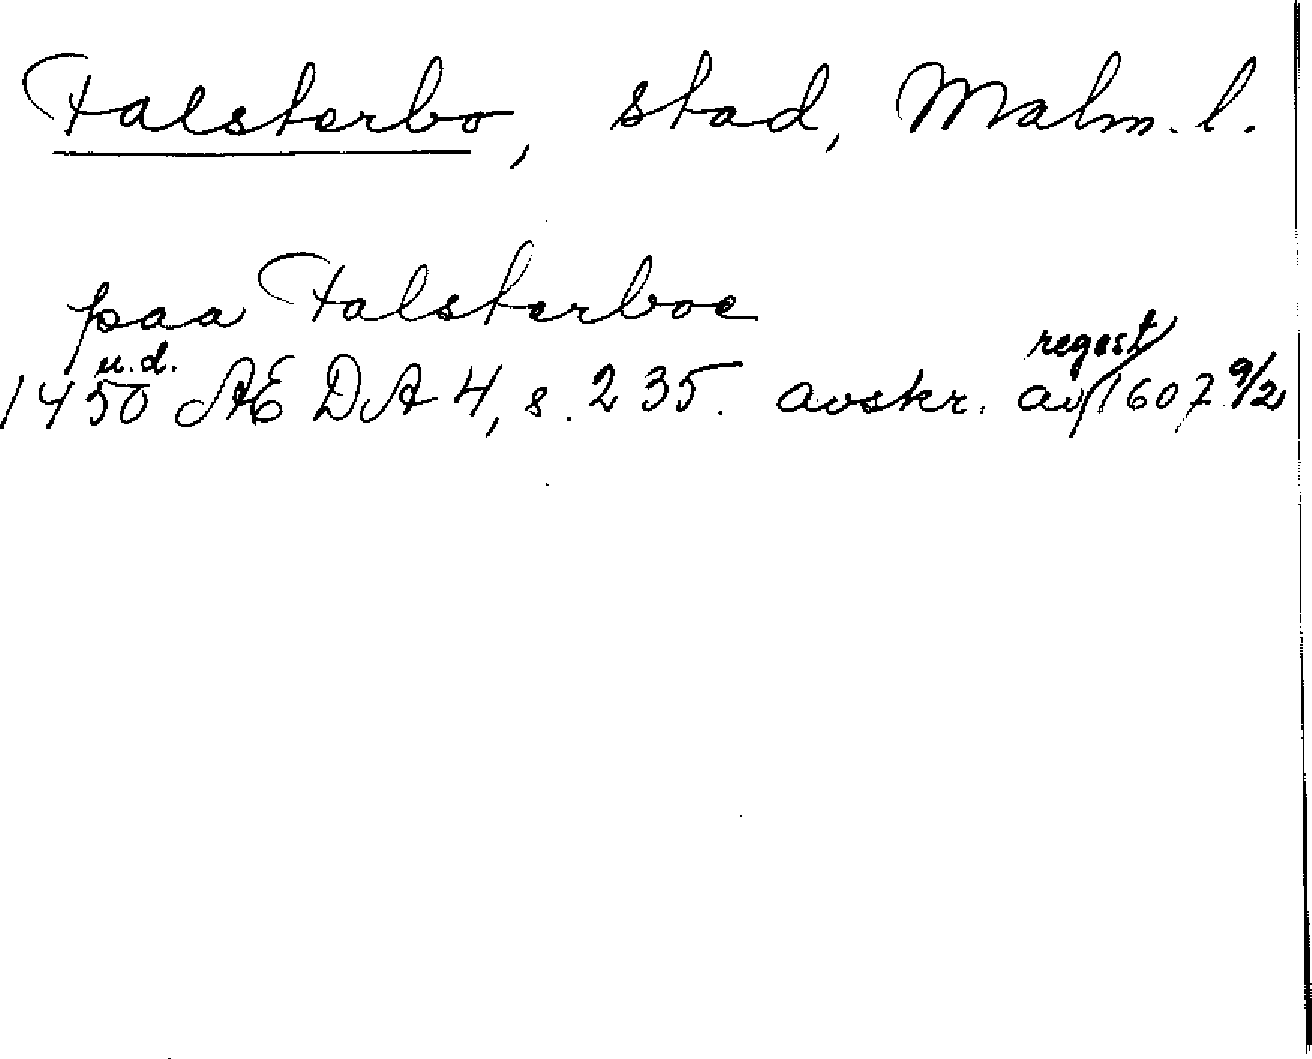 Falsterbo, stad, Malm. l.
paa Falsterboe
1450 u.d. ÆDA 4, s. 235. avskr. av regest 1607 9/2